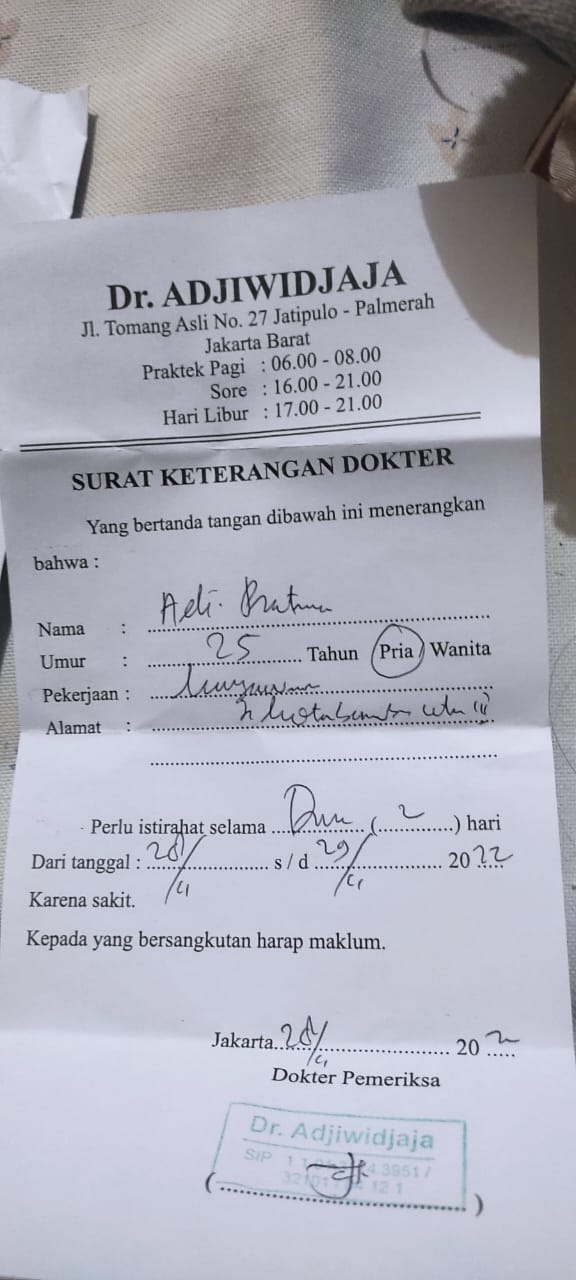 Dr. ADJIWIDJAJA
Jl. Tomang Asli No. 27 Jatipulo - Palmerah
Jakarta Barat
Praktek Pagi : 06.00 - 08.00
Sore : 16.00 - 21.00
Hari Libur : 17.00 - 21.00
SURAT KETERANGAN DOKTER
Yang bertanda tangan dibawah ini menerangkan
bahwa :
Nama : Adi
Umur : 25 Tahun Pria / Wanita
Pekerjaan :
Alamat :
Perlu istirahat selama Dua ( 2 ) hari
Dari tanggal : 28/ s / d 29/ 2022
Karena sakit.
Kepada yang bersangkutan harap maklum.
Jakarta 28/ 202
Dokter Pemeriksa
Dr. Adjiwidjaja
SIP
( )